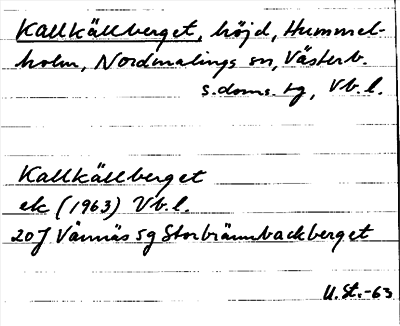 Kallkällberget, höjd, Hummel-
holm, Nordmalings sn, Västerb.
s.doms. tg, Vb. l.
Kallkällberget
ek (1963) Vb. l.
20J Vännäs 5g Storbrännbackberget
U.St.-63